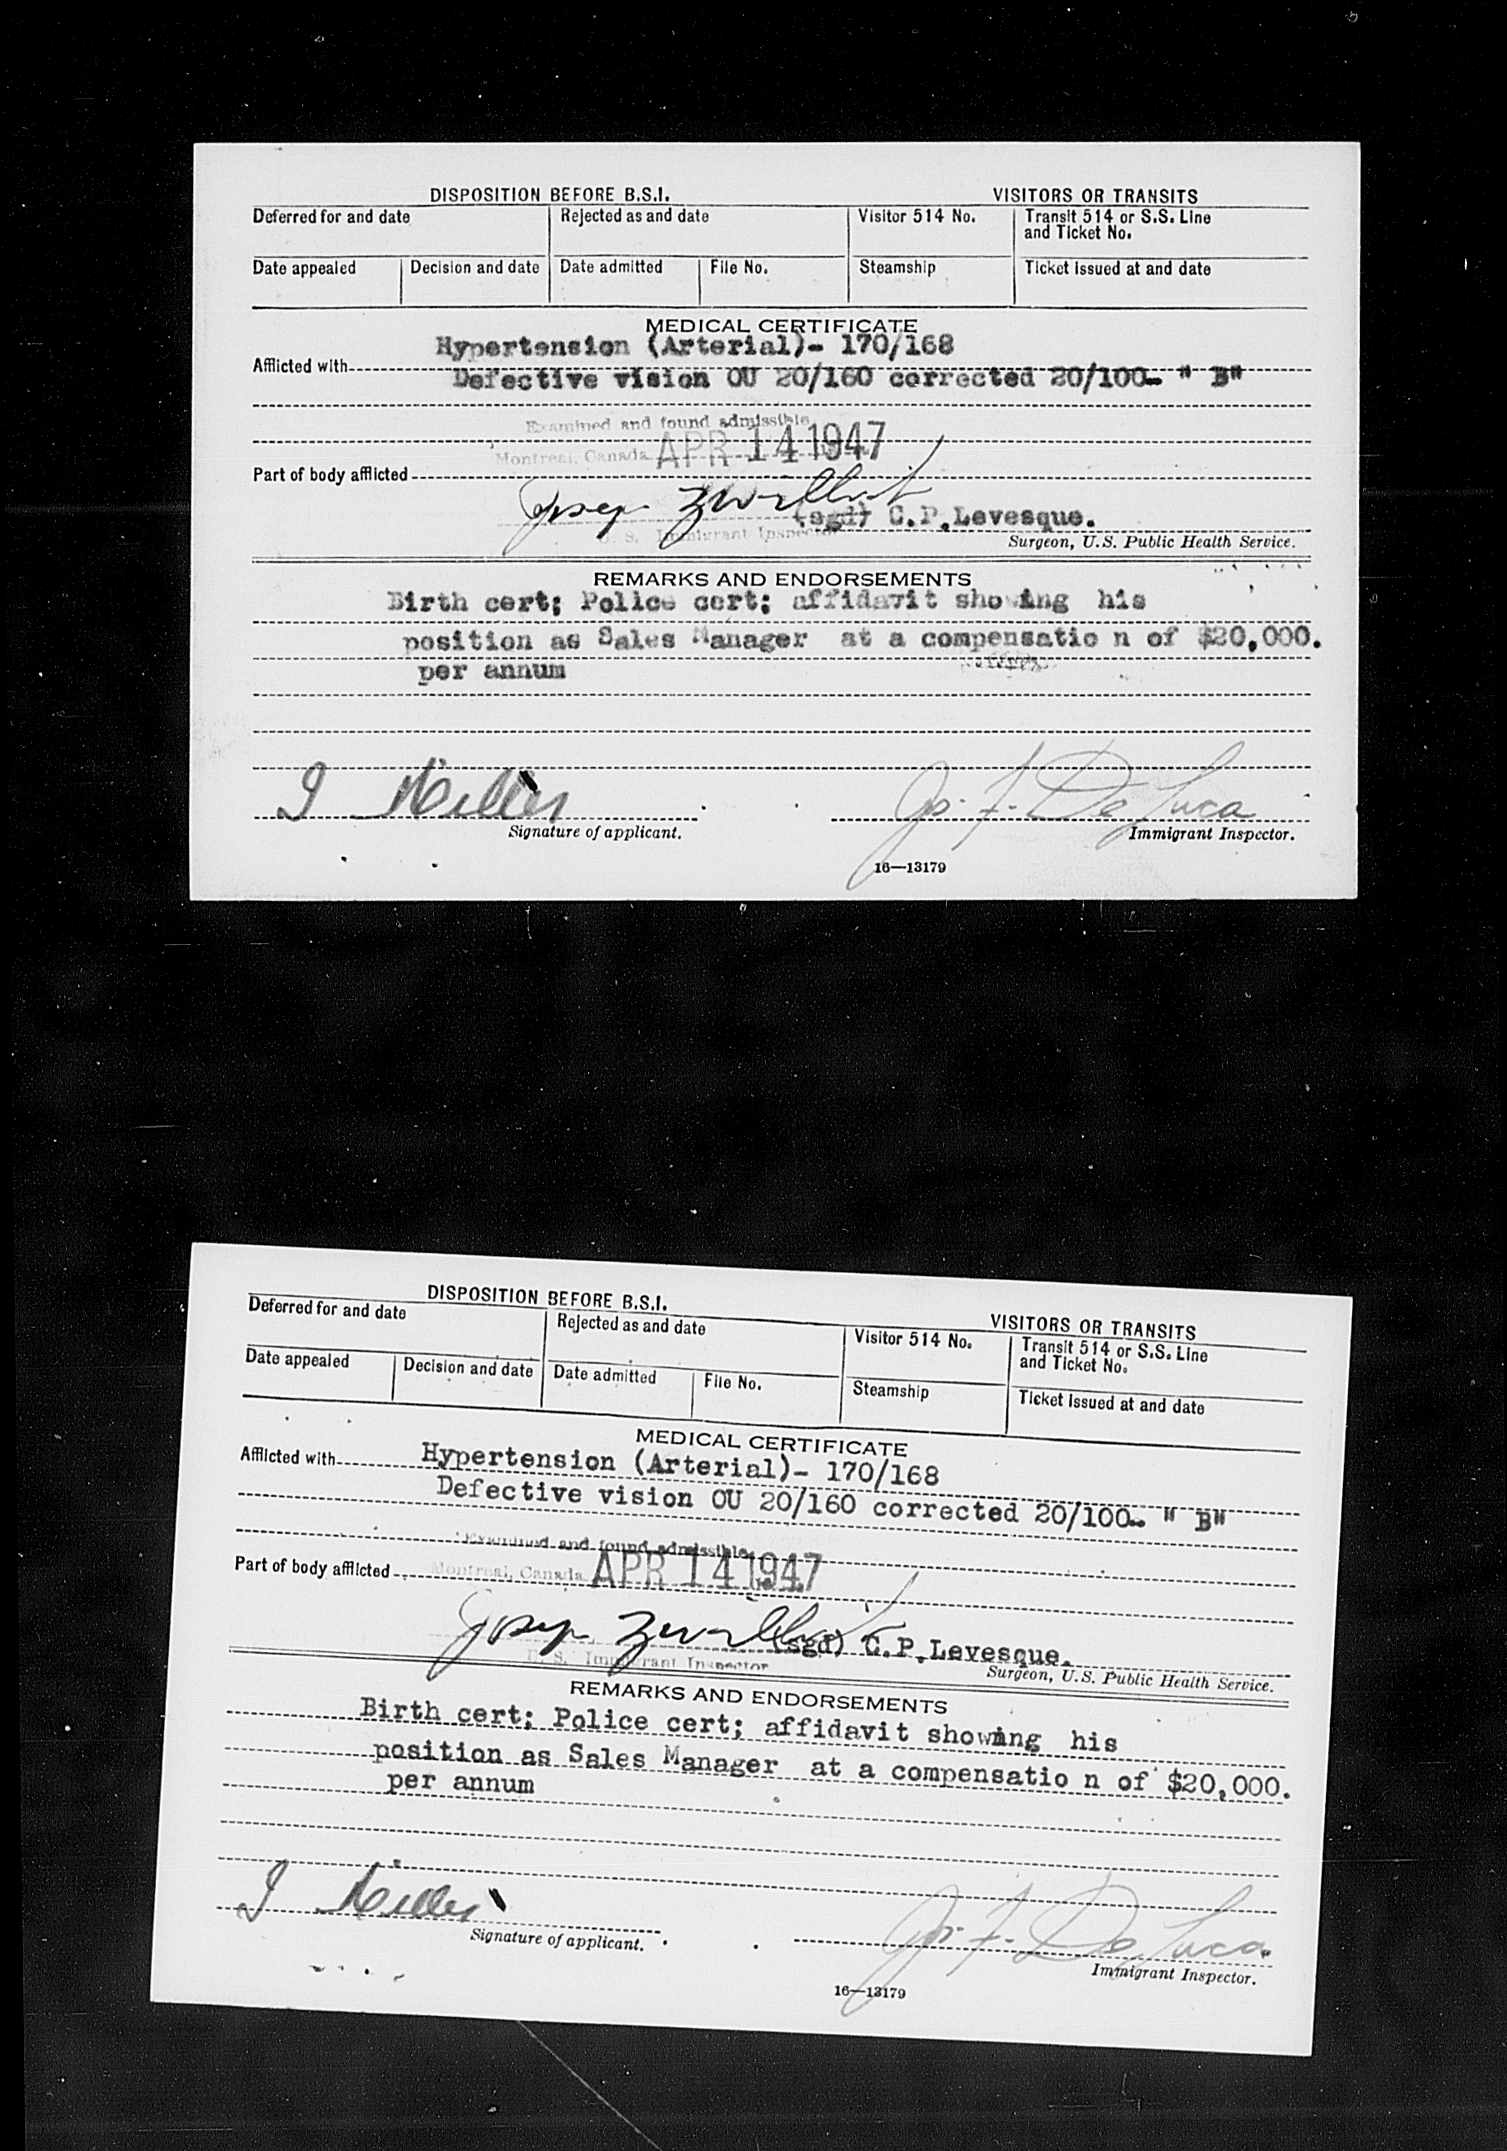 DISPOSITION BEFORE B.S.I.
VISITORS OR TRANSITS
Deferred for and date
Rejected as and date
Visitor 514 No.
Transit 514 or S.S. Line
and Ticket No.
Date appealed
Decision and date
Date admitted
File No.
Steamship
Ticket issued at and date
MEDICAL CERTIFICATE
Afflicted with Hypertension (Arterial)- 170/168
Defective vision OU 20/160 corrected 20/100- " B"
Examined and found admissible
Montreal, Canada APR 14 1947
Part of body afflicted
(sgd) C.P.Levesque.
U. S. Immigrant Inspector
Surgeon, U.S. Public Health Service.
REMARKS AND ENDORSEMENTS
Birth cert; Police cert; affidavit showing his
position as Sales Manager at a compensatio n of $20,000.
per annum
Jos. F. De Luca
Signature of applicant.
Immigrant Inspector.
16—13179
DISPOSITION BEFORE B.S.I.
VISITORS OR TRANSITS
Deferred for and date
Rejected as and date
Visitor 514 No.
Transit 514 or S.S. Line
and Ticket No.
Date appealed
Decision and date
Date admitted
File No.
Steamship
Ticket issued at and date
MEDICAL CERTIFICATE
Afflicted with Hypertension (Arterial)- 170/168
Defective vision OU 20/160 corrected 20/100- " B"
Examined and found admissible
Montreal, Canada APR 14 1947
Part of body afflicted
(sgd) C.P.Levesque.
U. S. Immigrant Inspector
Surgeon, U.S. Public Health Service.
REMARKS AND ENDORSEMENTS
Birth cert; Police cert; affidavit showing his
position as Sales Manager at a compensatio n of $20,000.
per annum
Jos. F. De Luca
Signature of applicant.
Immigrant Inspector.
16—13179